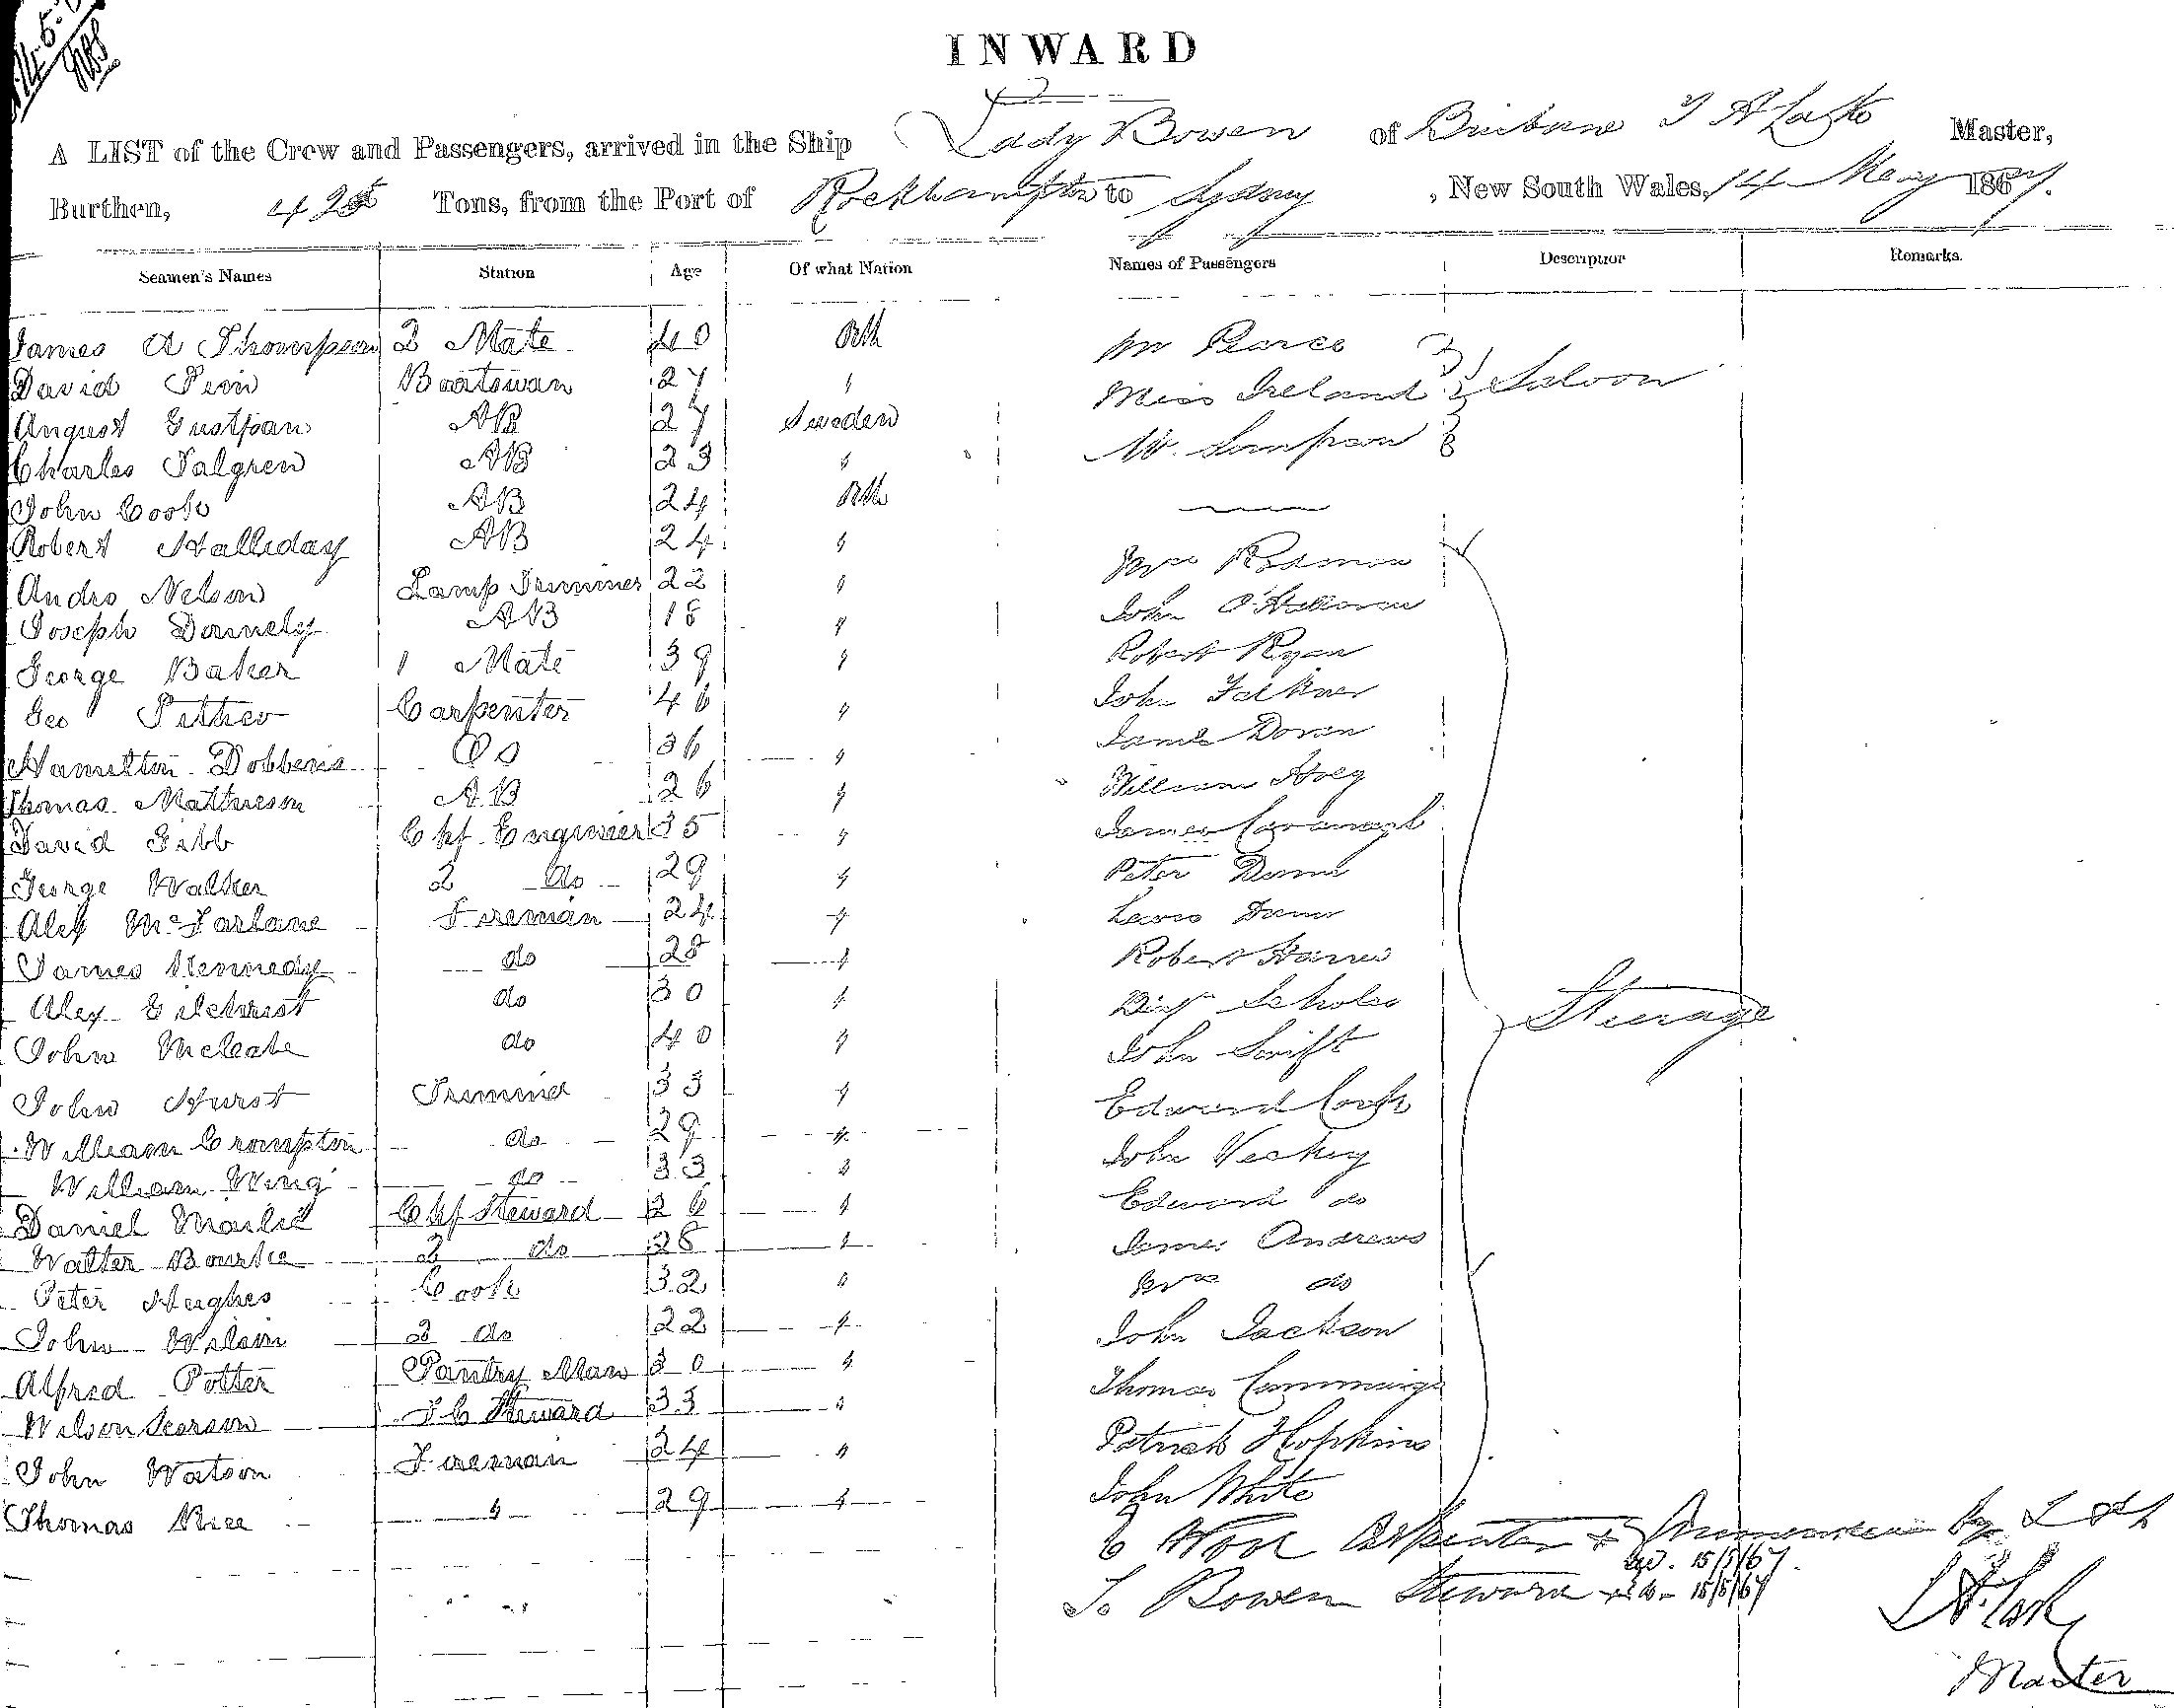 INWARD
A LIST of the Crew and Passengers, arrived in the Ship Lady Bowen of Brisbane Master,
Burthen, 425 Tons, from the Port of Rockhampton to Sydney, New South Wales, 14 May 1867.
Seamen's Names Station Age Of what Nation Names of Passengers Description Remarks.
James A Thompson 2 Mate 40 Mr Pearce
David Boatswan 27 " Miss Ireland Saloon
August Gustfsan AB 27 Sweden Mr. Sampson
Charles Falgren AB 23 "
John Cook AB 24
Robert Halliday AB 24 " Mrs Redmon
Andro Nelson Lamp Trimmer 22 " John O'Halloran
Joseph Donnely AB 18 " Robert Ryan
George Baker 1 Mate 39 " John Falkner
Geo Carpenter 46 " James Doran
Hamilton Dobbens Do 36 " William Hoey
Thomas Mathieson AB 26 " James Cavanagh
David Gibb Chf Enginier 35 " Peter
George Walker 2 do 29 " Lewis
Alex McFarlane Fireman 24 " Robert Harris
James Kennedy do 28 " Scholes
Alex Gilchrist do 30 " John Swift
John McCabe do 40 " Edward Cook
John Hurst Trimmer 33 " John Veckey
William Crompton do 29 " Edward do
William Wing do 33 " James Andrews
Daniel Chf Steward 26 " Mrs do
Walter Bourke 2 do 28 " John Jackson
Peter Hughes Cook 32 " Thomas Cummings
John Wilson 2 do 22 " Patrick Hopkins
Alfred Potter Pantry Man 30 " John White
Wilson Pearson F C Steward 33 "
John Watson Fireman 24 "
Thomas Rice " 29 "
C Carpenter
15/5/67
T. Bowen Steward 15/5/67
Master